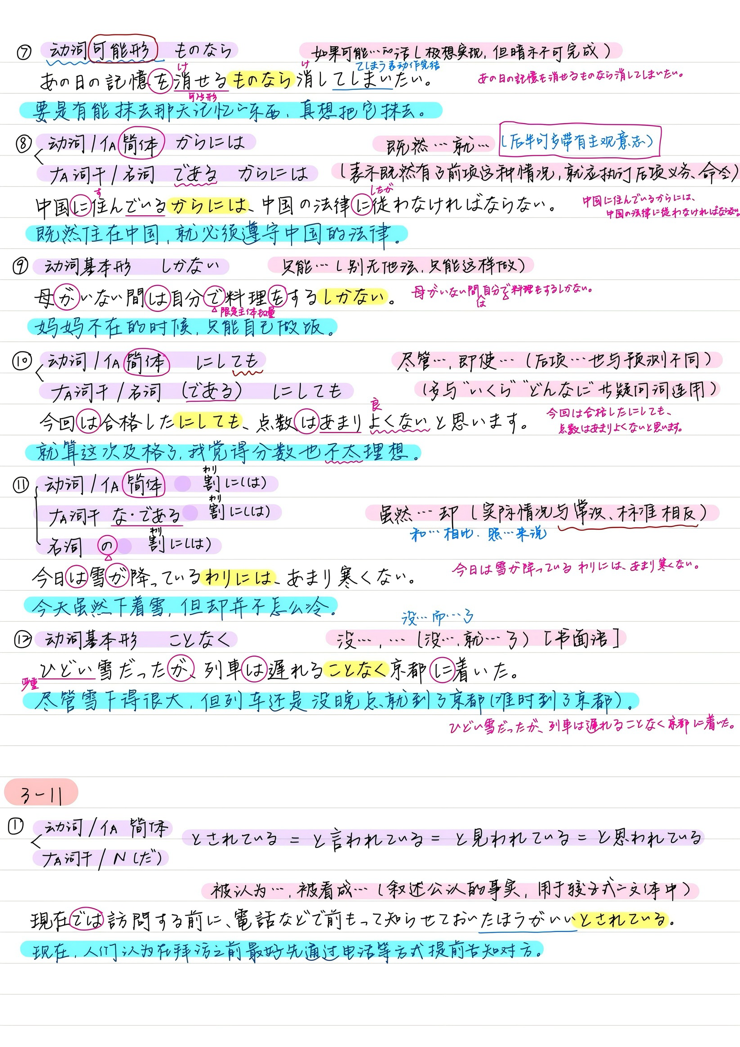 ⑦ 动词可能形 ものなら 如果可能…的话（极想实现,但暗示不可完成）
てしまう表动作完结
け け
あの日の記憶を消せるものなら消してしまいたい。 あの日の記憶を消せるものなら消してしまいたい。
可能形
要是有能抹去那天记忆的东西,真想把它抹去。
⑧ 动词/イA简体 からには 既然…就… （后半句多带有主观意志）
ナA词干/名词 である からには （表示既然有了前项这种情况,就应执行后项义务、命令）
す したが
中国に住んでいるからには、中国の法律に従わなければならない。 中国に住んでいるからには、
中国の法律に従わなければならない。
既然住在中国,就必须遵守中国的法律。
⑨ 动词基本形 しかない 只能…（别无他法,只能这样做）
母がいない間は自分で料理をするしかない。 母がいない間は自分で料理をするしかない。
限定主体数量
妈妈不在的时候,只能自己做饭。
⑩ 动词/イA简体 にしても 尽管…,即使…（后项…也与预测不同）
ナA词干/名词（である） にしても （多与"いくら""どんなに"等疑问词连用）
良
今回は合格したにしても、点数はあまりよくないと思います。 今回は合格したにしても、
点数はあまりよくないと思います。
就算这次及格了,我觉得分数也不太理想。
⑪ 动词/イA简体 割に(は)
わり
ナA词干 な・である 割に(は) 虽然…却（实际情况与常识、标准相反）
わり
名词 の 割に(は) 和…相比,照…来说
わり
今日は雪が降っているわりには、あまり寒くない。 今日は雪が降っているわりには、あまり寒くない。
今天虽然下着雪,但却并不怎么冷。
没…而…了
⑫ 动词基本形 ことなく 没…,…（没…,就…了）[书面语]
ひどい雪だったが、列車は遅れることなく京都に着いた。
尽管雪下得很大,但列车还是没晚点就到了京都(准时到了京都)。
ひどい雪だったが、列車は遅れることなく京都に着いた。
3-11
① 动词/イA 简体 とされている = と言われている = と見われている = と思われている
ナA词干/N(だ)
被认为…,被看成…（叙述公认的事实,用于较正式的文体中）
現在では訪問する前に、電話などで前もって知らせておいたほうがいいとされている。
现在,人们认为在拜访之前最好先通过电话等方式提前告知对方。